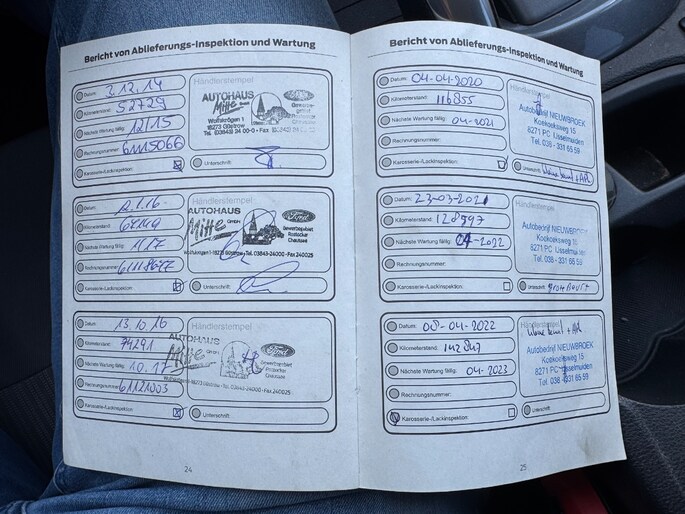 Bericht von Ablieferungs-Inspektion und Wartung
Datum: 2.12.14
Kilometerstand: 52729
Nächste Wartung fällig: 12/15
Rechnungsnummer: 61115066
Karosserie-/Lackinspektion:
Händlerstempel:
AUTOHAUS
Mitte GmbH
Ford
18273 Güstrow
Unterschrift:
Datum:
Kilometerstand:
Nächste Wartung fällig: 1.17
Rechnungsnummer:
Karosserie-/Lackinspektion:
Händlerstempel:
AUTOHAUS
Mitte GmbH
Ford
Gewerbegebiet
Rostocker
Chaussee
18273 Güstrow Tel. 03843-24000 - Fax 240025
Unterschrift:
Datum: 13.10.16
Kilometerstand: 74291
Nächste Wartung fällig: 10.17
Rechnungsnummer: 61121003
Karosserie-/Lackinspektion:
Händlerstempel:
AUTOHAUS
Mitte GmbH
Ford
Gewerbegebiet
Rostocker
Chaussee
18273 Güstrow Tel. 03843-24000 - Fax 240025
Unterschrift:
24
Bericht von Ablieferungs-Inspektion und Wartung
Datum: 04-04-2020
Kilometerstand: 116855
Nächste Wartung fällig: 04-2021
Rechnungsnummer:
Karosserie-/Lackinspektion:
Händlerstempel:
Autobedrijf NIEUWBROEK
Koekoeksweg 15
8271 PC IJsselmuiden
Tel. 038 - 331 66 59
Unterschrift:
Datum: 23-03-2021
Kilometerstand: 128997
Nächste Wartung fällig: 04-2022
Rechnungsnummer:
Karosserie-/Lackinspektion:
Händlerstempel:
Autobedrijf NIEUWBROEK
Koekoeksweg 15
8271 PC IJsselmuiden
Tel. 038 - 331 66 59
Unterschrift:
Datum: 08-04-2022
Kilometerstand: 142847
Nächste Wartung fällig: 04-2023
Rechnungsnummer:
Karosserie-/Lackinspektion:
Händlerstempel:
Autobedrijf NIEUWBROEK
Koekoeksweg 15
8271 PC IJsselmuiden
Tel. 038 - 331 66 59
Unterschrift:
25